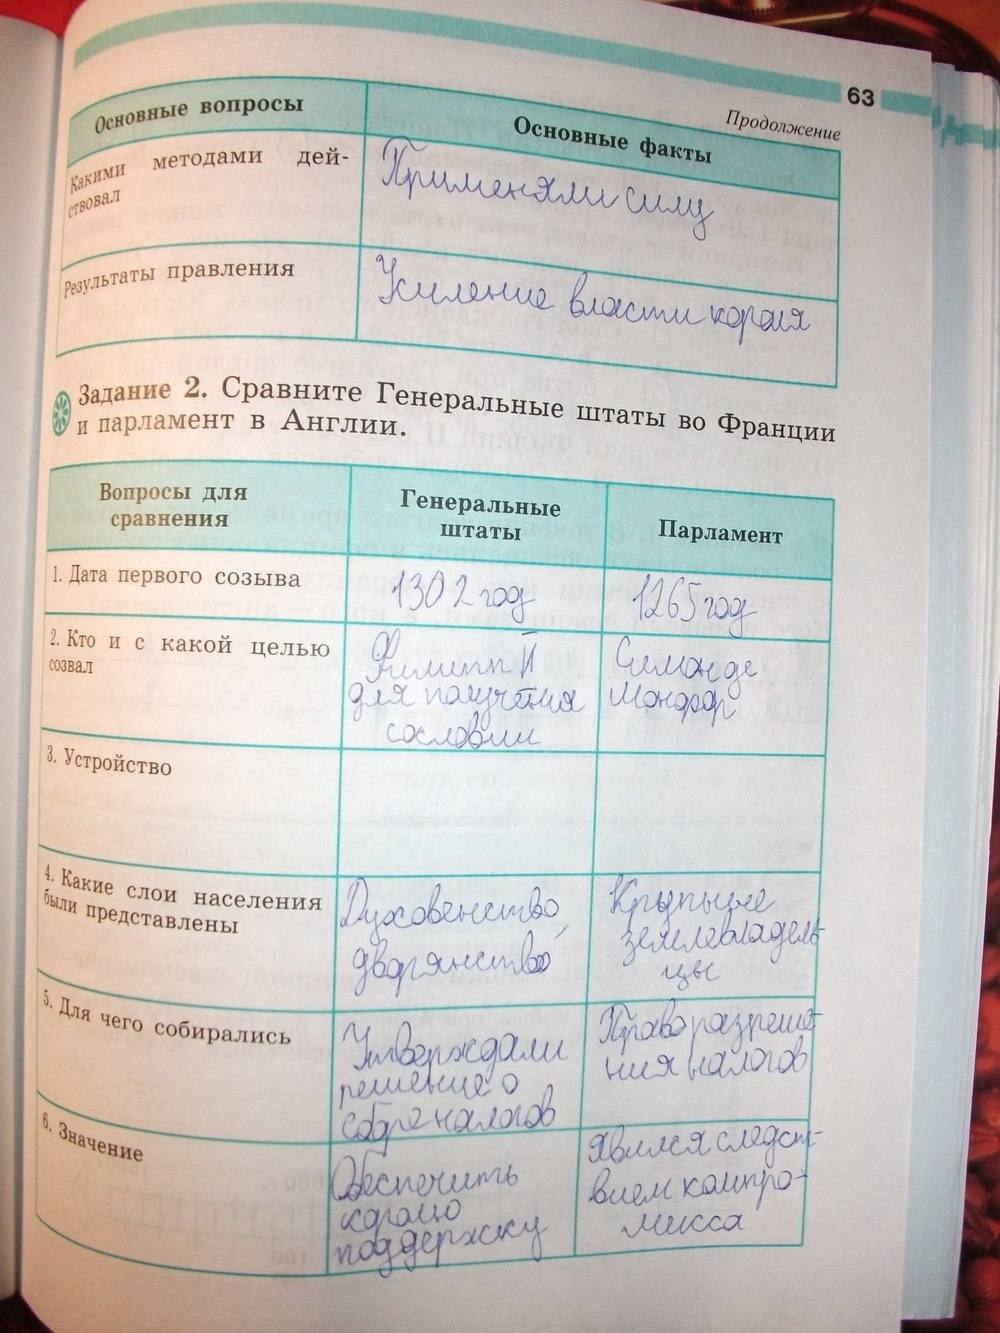 63
Продолжение
Основные вопросы
Основные факты
Какими методами дей-
ствовал
Применяли силу
Результаты правления
Усиление власти короля
Задание 2. Сравните Генеральные штаты во Франции
и парламент в Англии.
Вопросы для
сравнения
Генеральные
штаты
Парламент
1. Дата первого созыва
1302 год
1265 год
2. Кто и с какой целью
созвал
Филипп II
для получения
сословии
Симон де
Монфор
3. Устройство
4. Какие слои населения
были представлены
Духовенство,
дворянство
Крупные
землевладель-
цы
5. Для чего собирались
Утверждали
решение о
сборе налогов
Право разреше-
ния налогов
6. Значение
Обеспечить
королю
поддержку
явился следст-
вием компро-
мисса